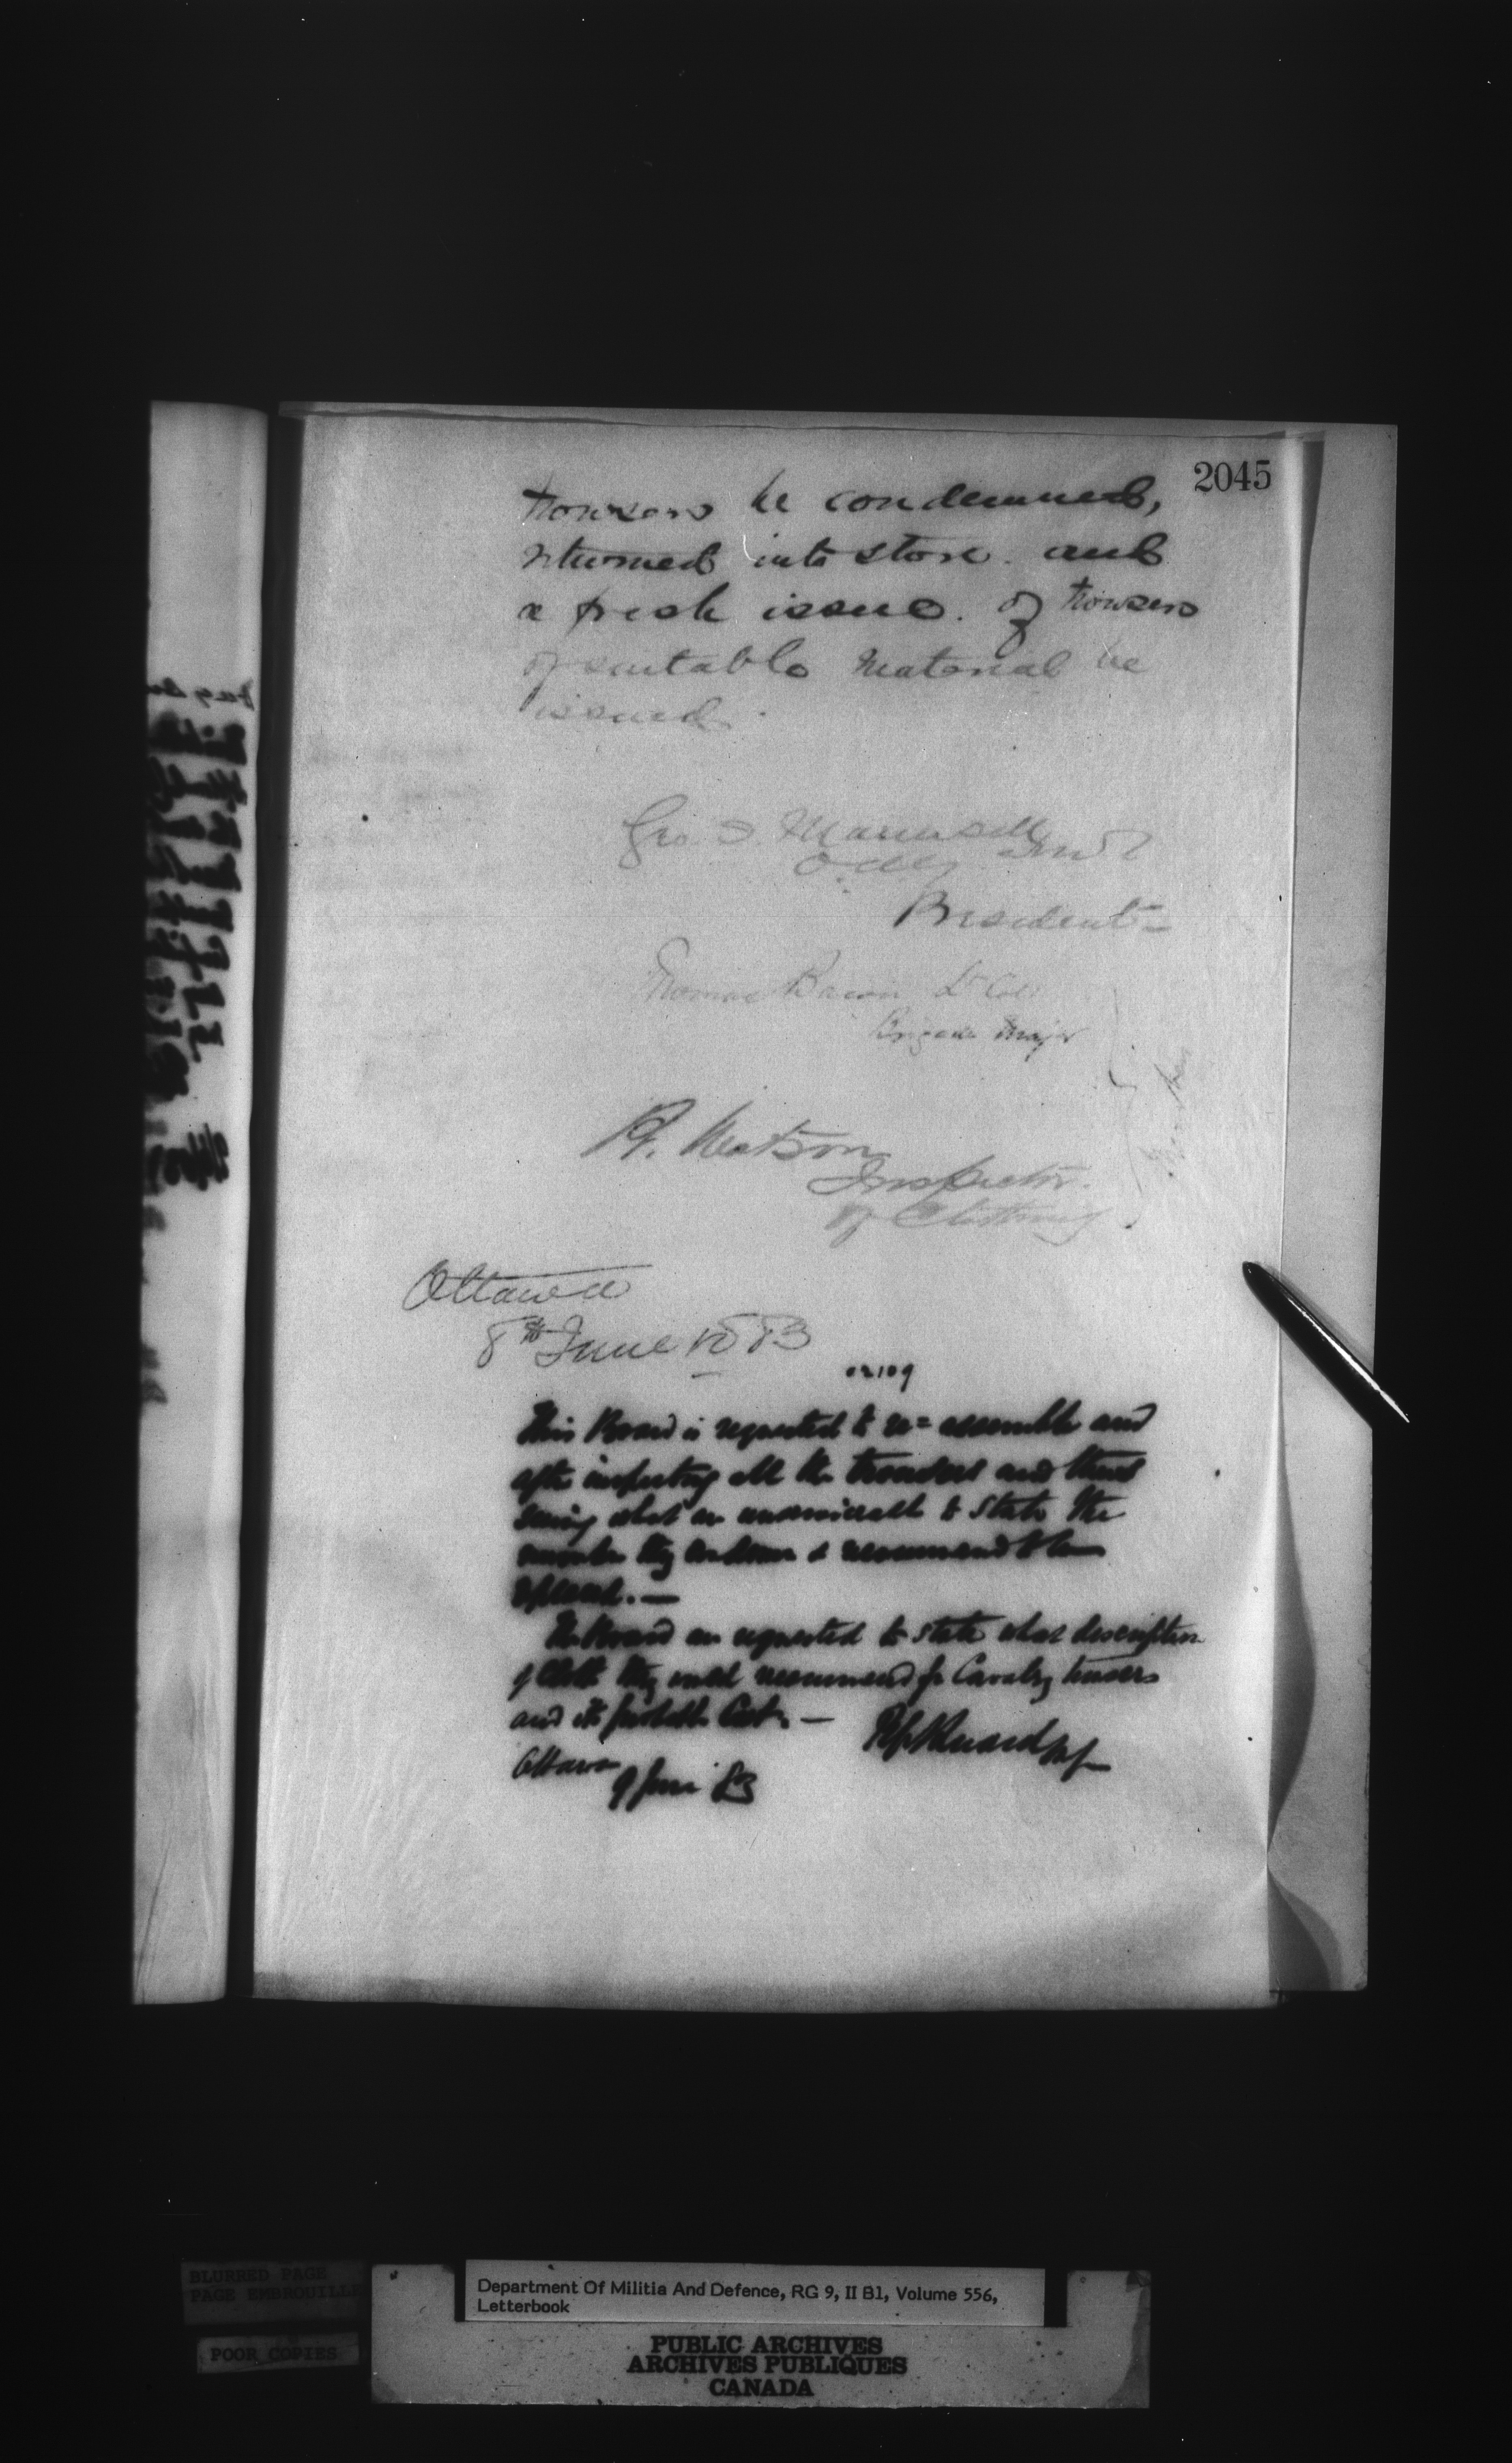 2045
trowsers be condemned,
returned into store. and
a fresh issue. of trowsers
of suitable Material be
issued.
Geo. S. Maunsell
President
Thomas Bacon Lt Col
Brigade Major
R. Watson
Inspector
of Clothing
Ottawa
8th June 1883
02109
This Board is requested to re=assemble and
after inspecting all the trousers and
seeing what are unserviceable to state the
number they condemn & recommend to be
replaced.—
The Board are requested to state what description
of Cloth they would recommend for Cavalry trousers
and its probable Cost.—
Ottawa
9 June 83
BLURRED PAGE
PAGE EMBROUILLE
POOR COPIES
Department Of Militia And Defence, RG 9, II B1, Volume 556,
Letterbook
PUBLIC ARCHIVES
ARCHIVES PUBLIQUES
CANADA